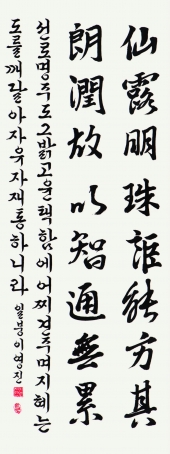 仙露明珠詎能方其
朗潤故以智通無累
선로명주도그밝고윤택함에어찌견주며지혜는
도를깨달아자유자재통하니라 일붕이영진